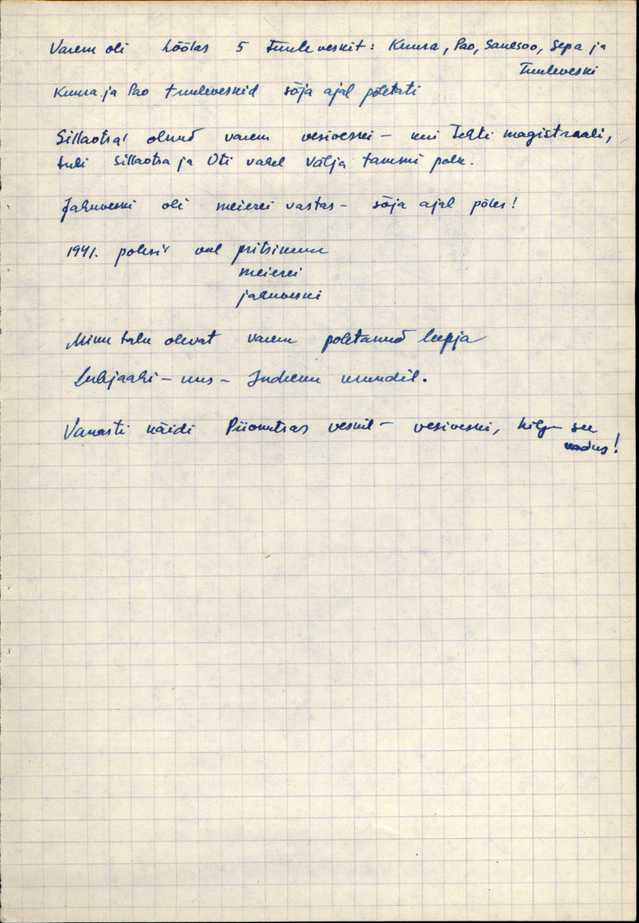 Varem oli Lõõlas 5 tuuleveskit: Kuura, Pao, Sauesoo, Sepa ja
Tuuleveski
Kuura ja Pao tuuleveskid sõja ajal põletati
Sillaotsal olnud varem vesiveski – kui tehti magistraali,
tuli Sillaotsa ja Oti vahel välja tammi palk.
Jahuveski oli meierei vastas – sõja ajal põles!
1941. põlesid val pritsikuur
meierei
jahuveski
Minu talu olevat varem põletanud lupja
Lubjaahi – uus – Juduu maadil.
Vanasti käidi Piiomtsas veskil – vesiveski, hilj see
kadus!